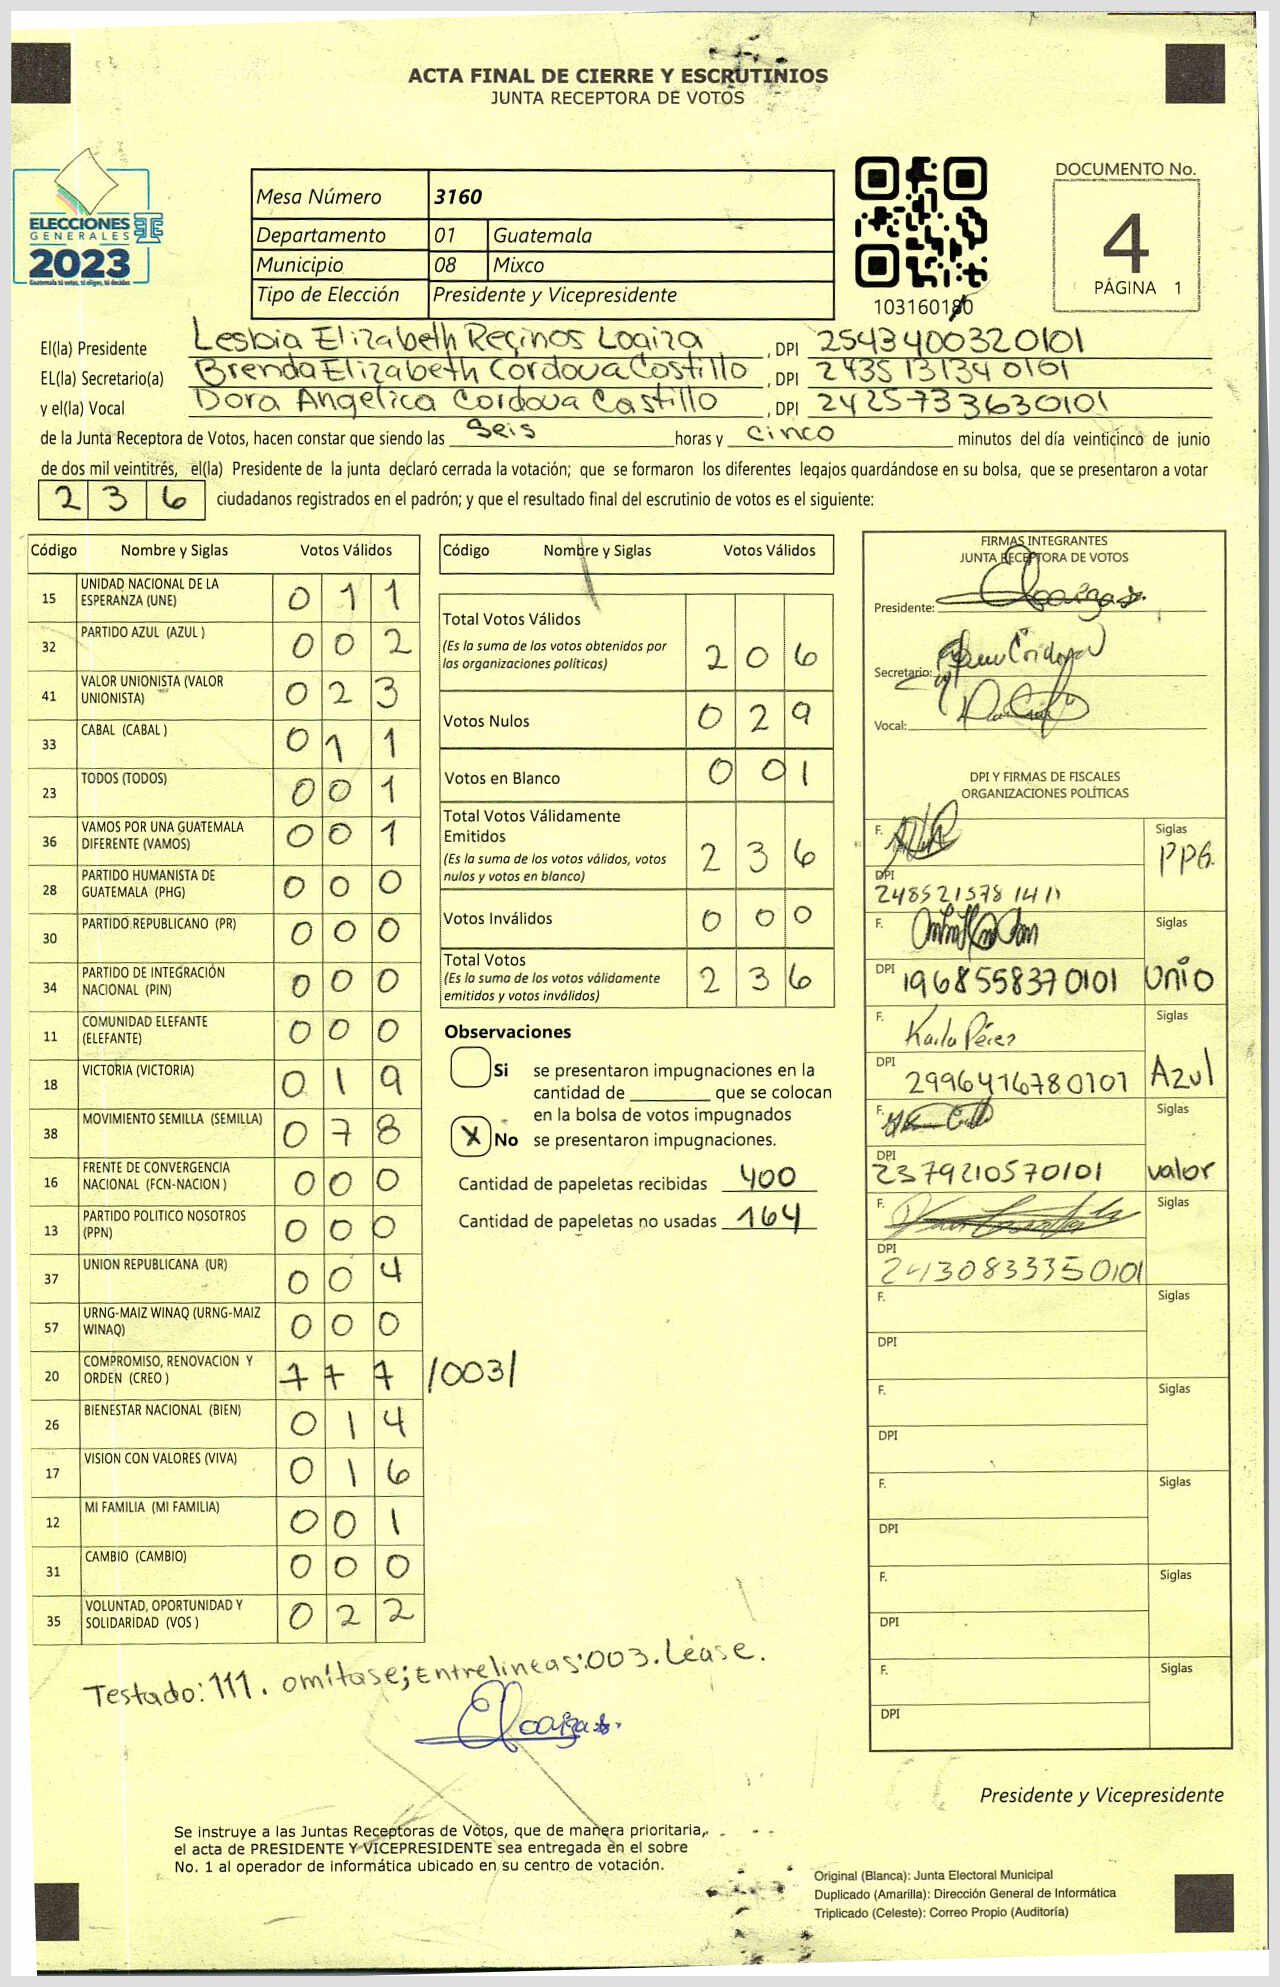 ACTA FINAL DE CIERRE Y ESCRUTINIOS
JUNTA RECEPTORA DE VOTOS
ELECCIONES
GENERALES
2023
Guatemala tú votas, tú eliges, tú decides
Mesa Número 3160
Departamento 01 Guatemala
Municipio 08 Mixco
Tipo de Elección Presidente y Vicepresidente
103160180
DOCUMENTO No.
4
PÁGINA 1
El(la) Presidente Lesbia Elizabeth Reçinos Loaiza, DPI 2543400320101
EL(la) Secretario(a) Brenda Elizabeth Cordova Costillo, DPI 2435131340101
y el(la) Vocal Dora Angelica Cordova Castillo, DPI 2425733630101
de la Junta Receptora de Votos, hacen constar que siendo las seis horas y cinco minutos del día veinticinco de junio
de dos mil veintitrés, el(la) Presidente de la junta declaró cerrada la votación; que se formaron los diferentes legajos quardándose en su bolsa, que se presentaron a votar
236 ciudadanos registrados en el padrón; y que el resultado final del escrutinio de votos es el siguiente:
Código Nombre y Siglas Votos Válidos
15 UNIDAD NACIONAL DE LA ESPERANZA (UNE) 011
32 PARTIDO AZUL (AZUL ) 002
41 VALOR UNIONISTA (VALOR UNIONISTA) 023
33 CABAL (CABAL ) 011
23 TODOS (TODOS) 001
36 VAMOS POR UNA GUATEMALA DIFERENTE (VAMOS) 001
28 PARTIDO HUMANISTA DE GUATEMALA (PHG) 000
30 PARTIDO REPUBLICANO (PR) 000
34 PARTIDO DE INTEGRACIÓN NACIONAL (PIN) 000
11 COMUNIDAD ELEFANTE (ELEFANTE) 000
18 VICTORIA (VICTORIA) 019
38 MOVIMIENTO SEMILLA (SEMILLA) 078
16 FRENTE DE CONVERGENCIA NACIONAL (FCN-NACION ) 000
13 PARTIDO POLITICO NOSOTROS (PPN) 000
37 UNION REPUBLICANA (UR) 004
57 URNG-MAIZ WINAQ (URNG-MAIZ WINAQ) 000
20 COMPROMISO, RENOVACION Y ORDEN (CREO ) 111 /003/
26 BIENESTAR NACIONAL (BIEN) 014
17 VISION CON VALORES (VIVA) 016
12 MI FAMILIA (MI FAMILIA) 001
31 CAMBIO (CAMBIO) 000
35 VOLUNTAD, OPORTUNIDAD Y SOLIDARIDAD (VOS ) 022
Código Nombre y Siglas Votos Válidos
Total Votos Válidos 206
(Es la suma de los votos obtenidos por
las organizaciones políticas)
Votos Nulos 029
Votos en Blanco 001
Total Votos Válidamente
Emitidos 236
(Es la suma de los votos válidos, votos
nulos y votos en blanco)
Votos Inválidos 000
Total Votos 236
(Es la suma de los votos válidamente
emitidos y votos inválidos)
Observaciones
Si se presentaron impugnaciones en la
cantidad de ________ que se colocan
en la bolsa de votos impugnados
X No se presentaron impugnaciones.
Cantidad de papeletas recibidas 400
Cantidad de papeletas no usadas 164
FIRMAS INTEGRANTES
JUNTA RECEPTORA DE VOTOS
Presidente:
Secretario:
Vocal:
DPI Y FIRMAS DE FISCALES
ORGANIZACIONES POLÍTICAS
F. Siglas PPG.
DPI
F. Siglas
DPI 1968558370101 Unio
F. Karla Pérez Siglas
DPI 2996416780101 Azul
F. Siglas
DPI 2379210570101 valor
F. Siglas
DPI 2413083350101
F. Siglas
DPI
F. Siglas
DPI
F. Siglas
DPI
F. Siglas
DPI
F. Siglas
DPI
Testado: 111. omítase; Entrelineas: 003. Léase.
Presidente y Vicepresidente
Se instruye a las Juntas Receptoras de Votos, que de manera prioritaria,
el acta de PRESIDENTE Y VICEPRESIDENTE sea entregada en el sobre
No. 1 al operador de informática ubicado en su centro de votación.
Original (Blanca): Junta Electoral Municipal
Duplicado (Amarilla): Dirección General de Informática
Triplicado (Celeste): Correo Propio (Auditoría)